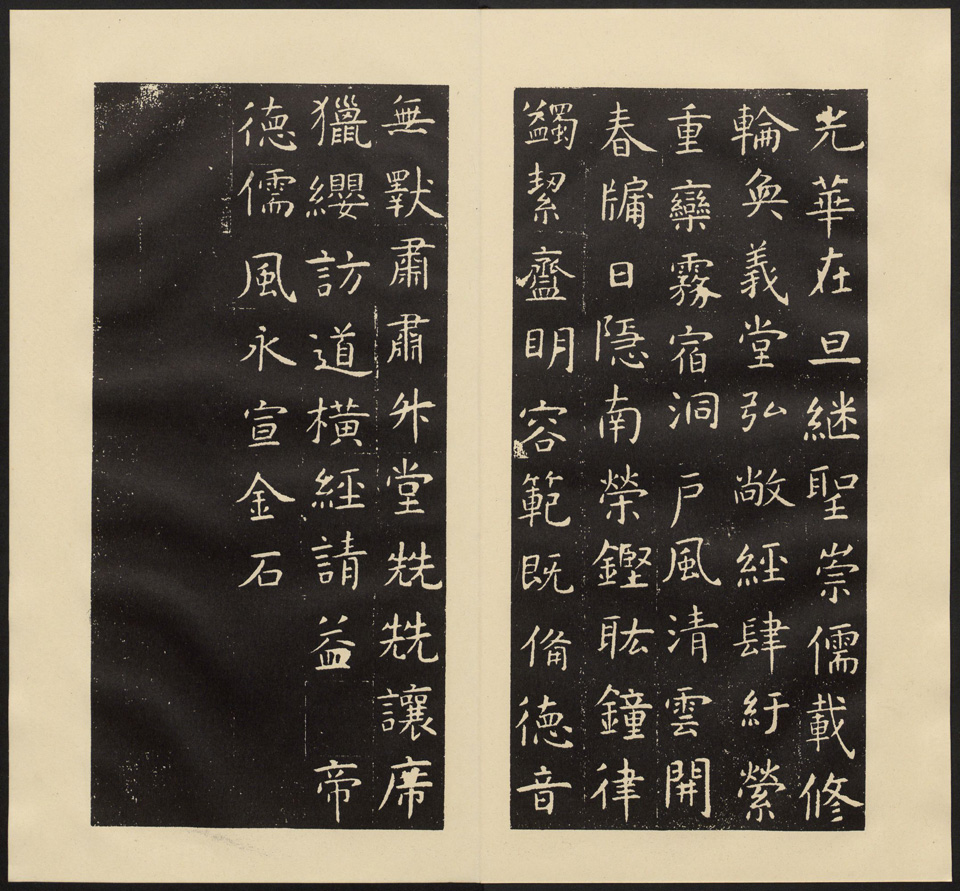 光華在旦継聖崇儒載修
輪奐義堂弘敞經肆紆縈
重欒霧宿洞戶風清雲開
春牖日隱南榮鏗耾鐘律
蠲絜齍明容範既備德音
無斁肅肅升堂兟兟讓席
獵纓訪道橫經請益　帝
德儒風永宣金石